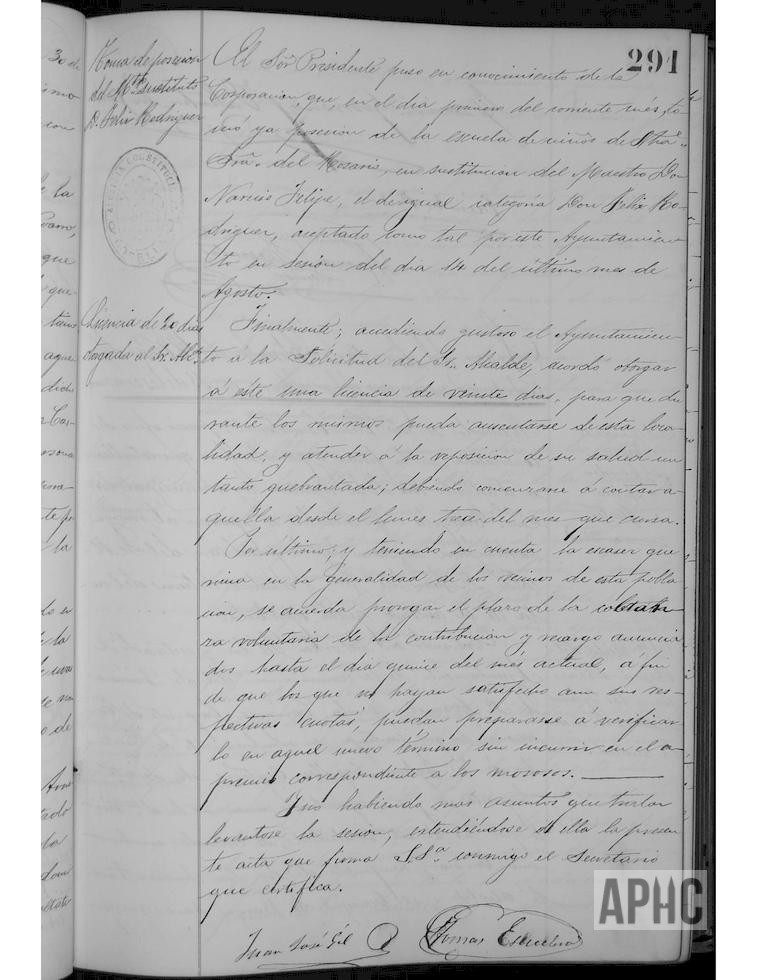 291
Toma de posesion
del Mtro. sustituto
D. Felix Rodriguez
El Sor. Presidente puso en conocimiento de la
Corporacion, que, en el dia primero del corriente mes, to
mó ya posesion de la escuela de niños de Ntra.
Sra. del Rosario, en sustitucion del Maestro Don
Narciso Felipe, el de igual categoria Don Felix Ro-
driguez, aceptado como tal por este Ayuntamien-
to en sesion del dia 14 del último mes de
Agosto.
Licencia de 20 dias
otorgada al Sr. Alc.
Finalmente; accediendo gustoso el Ayuntamien-
to á la solicitud del Sr. Alcalde, acordó otorgar
á este una licencia de veinte dias, para que du
rante los mismos pueda ausentarse de esta loca-
lidad, y atender á la reposicion de su salud un
tanto quebrantada; debiendo comenzarse á contar a-
quella desde el lunes trece del mes que cursa.
Por último; y teniendo en cuenta la escasez que
reina en la generalidad de los vecinos de esta pobla
cion, se acuerda prorogar el plazo de la cobran
za voluntaria de la contribucion y recargo anuncia
dos hasta el dia quince del més actual, á fin
de que los que no hayan satisfecho aun sus res-
pectivas cuotas, puedan prepararse á verificar-
lo en aquel nuevo término sin incurrir en el a-
premio correspondiente a los morosos.
Y no habiendo mas asuntos que tratar
levantose la sesion, extendiéndose de ella la presen
te acta que firma S.Sa. conmigo el Secretario
que certifica.
Juan José Gil
Thomas Escudero
APHC